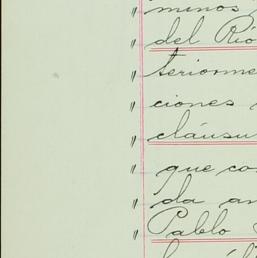 " minos
" del Río
" teriorme
" ciones
" cláusu
" que co
" da an
" Pablo